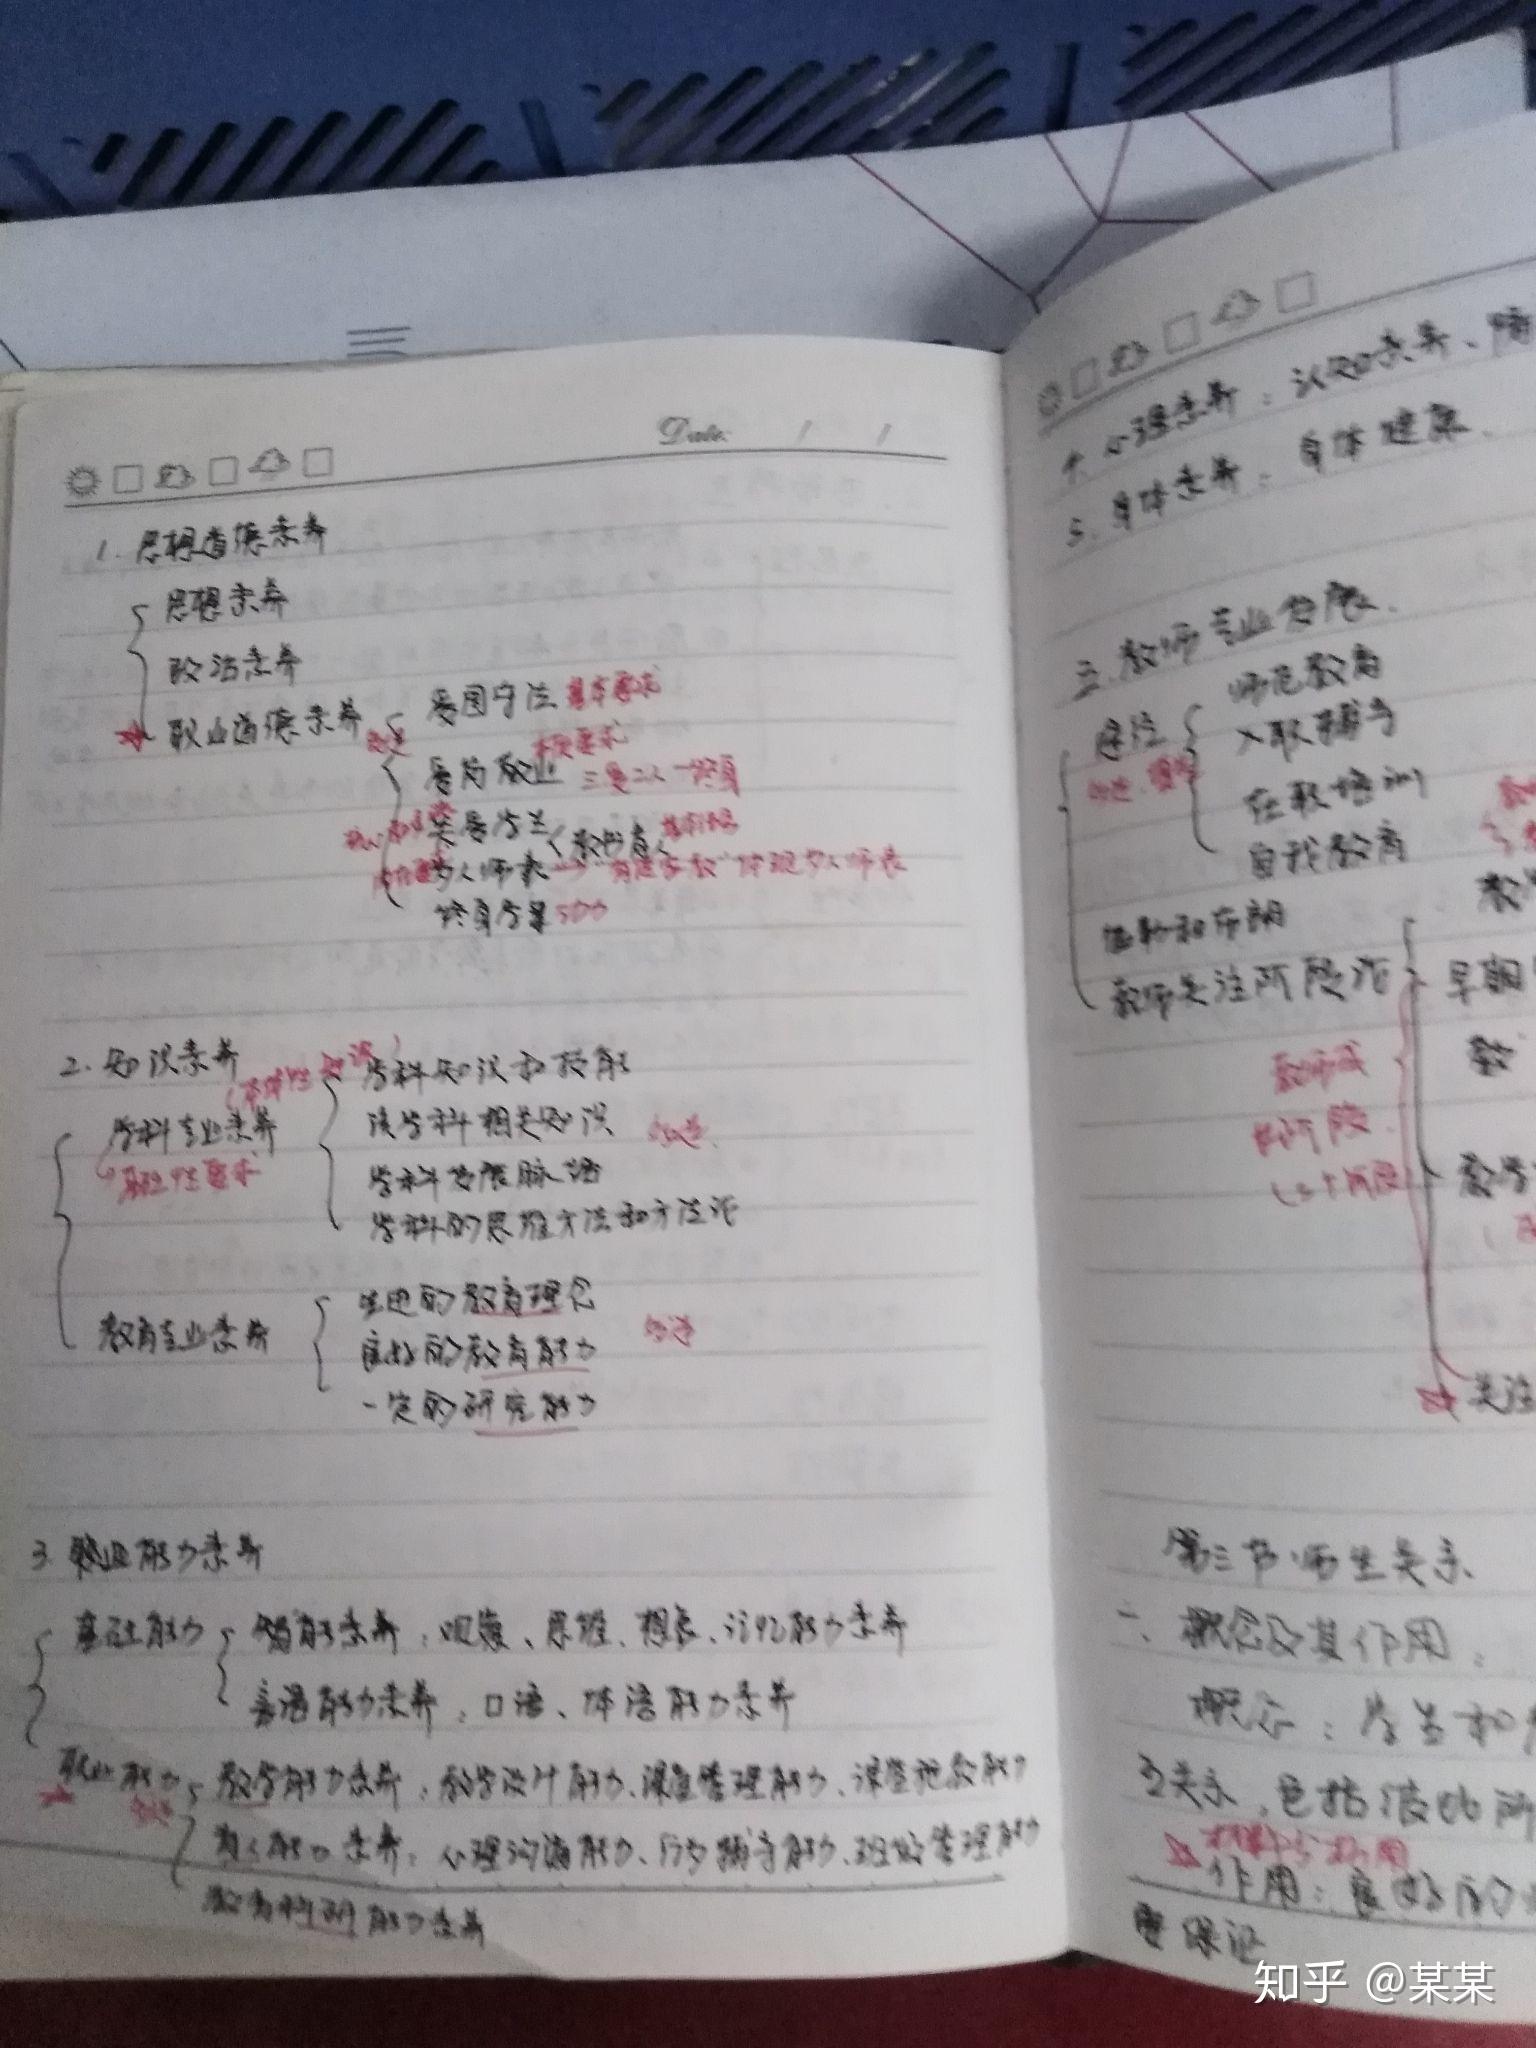 Date: / /
1. 思想道德素养
思想素养
政治素养
职业道德素养 勾选
爱国守法 基本要求
爱岗敬业 本质要求
三爱二人一终身
关爱学生
教书育人
为人师表 → "有道家教"体现为人师表
终身学习 动力
2. 知识素养
(本体性知识)
学科专业素养
基础性要求
学科知识和技能
该学科相关知识 勾选
学科发展脉络
学科的思维方法和方法论
教育专业素养
先进的教育理念
良好的教育能力 勾选
一定的研究能力
3. 职业能力素养
基础能力
智能素养：观察、思维、想象、记忆能力素养
言语能力素养：口语、体语能力素养
职业能力 勾选
教学能力素养：教学设计能力、课堂管理能力、课堂把教能力
育人能力素养：心理沟通能力、行为辅导能力、班级管理能力
教育科研能力素养
4. 心理素养：认知素养、情
5. 身体素养：身体健康.
三. 教师专业发展.
途径
师范教育
入职辅导
在职培训
自我教育
福勒和布朗
教师关注阶段论
早期
教师成
长阶段.
(三个阶段)
关注
第三节 师生关系
一、概念及其作用：
概念：学生和
互关系，包括彼此所
作用：良好的
要保证
知乎 @某某